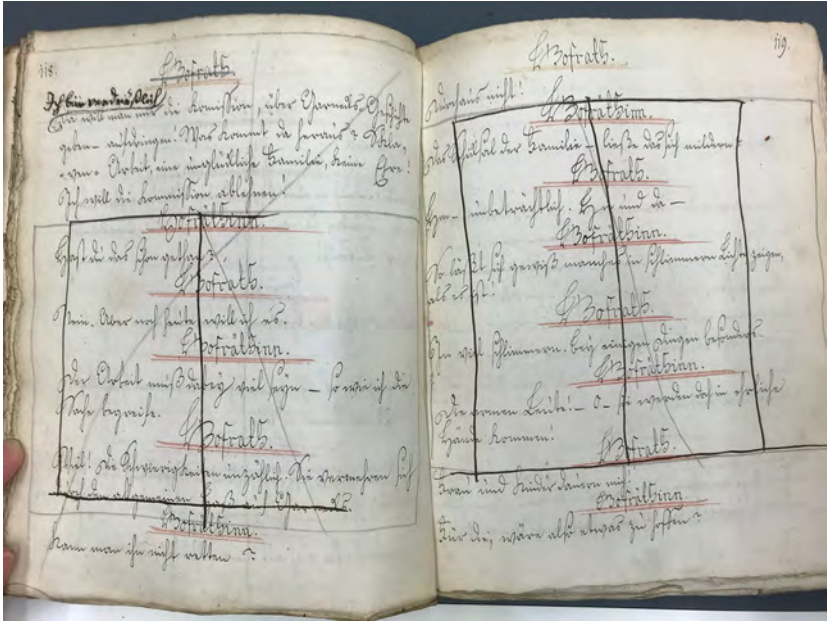 118.
Hofrath.
Ich bin verdrüßlich
Da will man mir die Komission, über Gharnds Geschichte
geben – aufdringen! Was kommt da heraus? Skla-
ven-Arbeit, eine unglückliche Familie, keine Ehre!
Ich will die Kommission ablehnen!
Hofräthinn.
Hast du das schon gethan?
Hofrath.
Nein. Aber noch heute will ich es.
Hofräthinn.
Der Arbeit muß dabey viel seyn – so wie ich die
Sache begreife.
Hofrath.
Viel! die Schwierigkeiten unzählich. Sie vermehren sich
durch den allgemeinen Haß auf Gharnds.
Hofräthinn.
Kann man ihn nicht retten?
119.
Hofrath.
Durchaus nicht!
Hofräthinn.
Das Schiksal der Familie – ließe das sich mildern?
Hofrath.
Hm – unbeträchtlich. Hie und da –
Hofräthinn.
So läßt sich gewiß manches in schlimmern Lichte zeigen,
als es ist.
Hofrath.
In viel schlimmern. bey einigen Dingen besonders.
Hofräthinn.
Die armen Leute! – O – sie werden doch in ehrliche
Hände kommen!
Hofrath.
Frau und Kinder dauern mich.
Hofräthinn.
Für die, wäre also etwas zu hoffen?